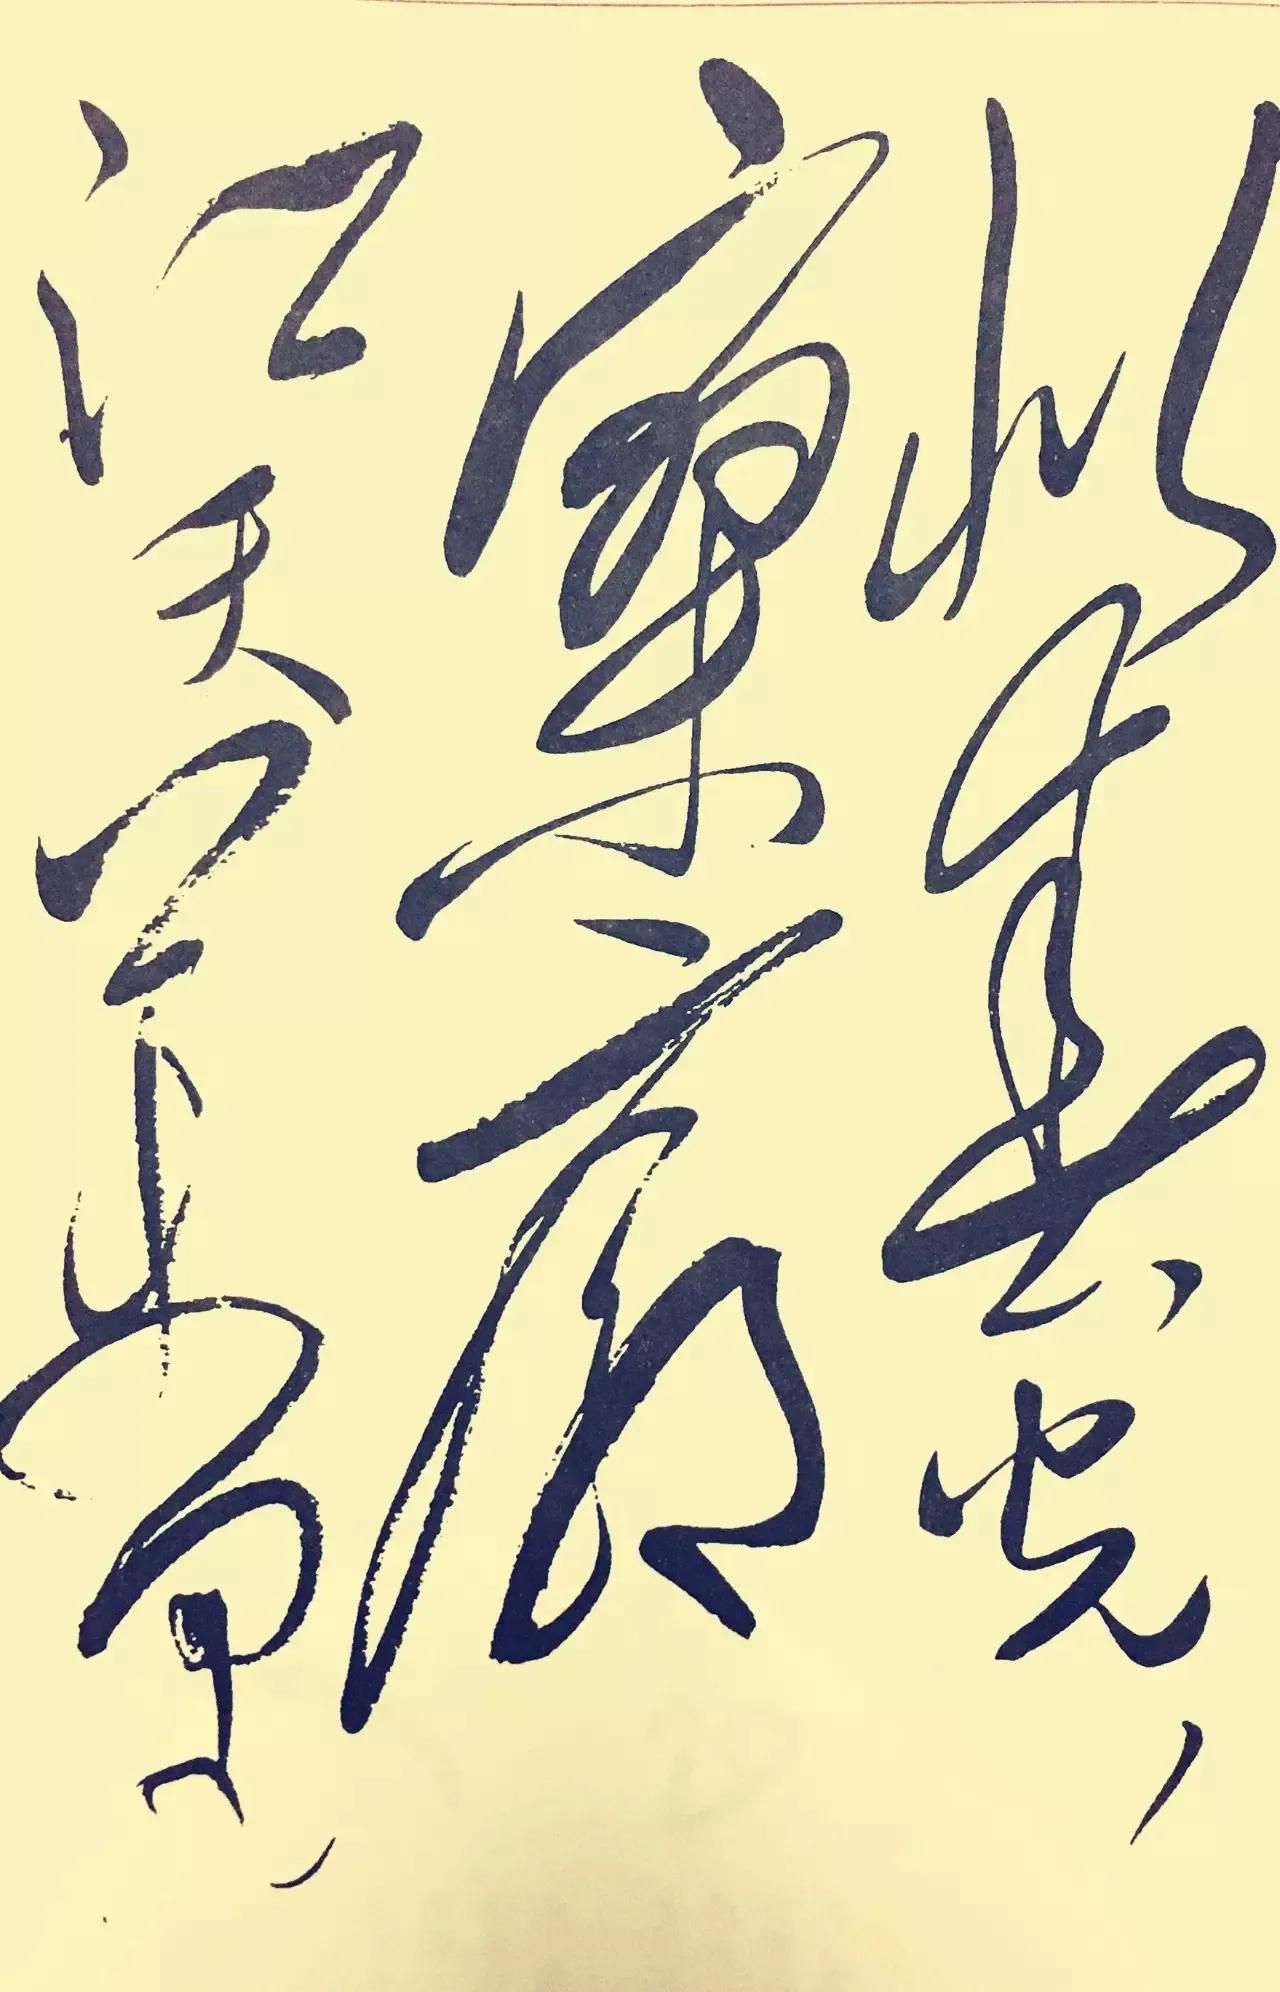 似春光，
寥廓
江天万里霜，